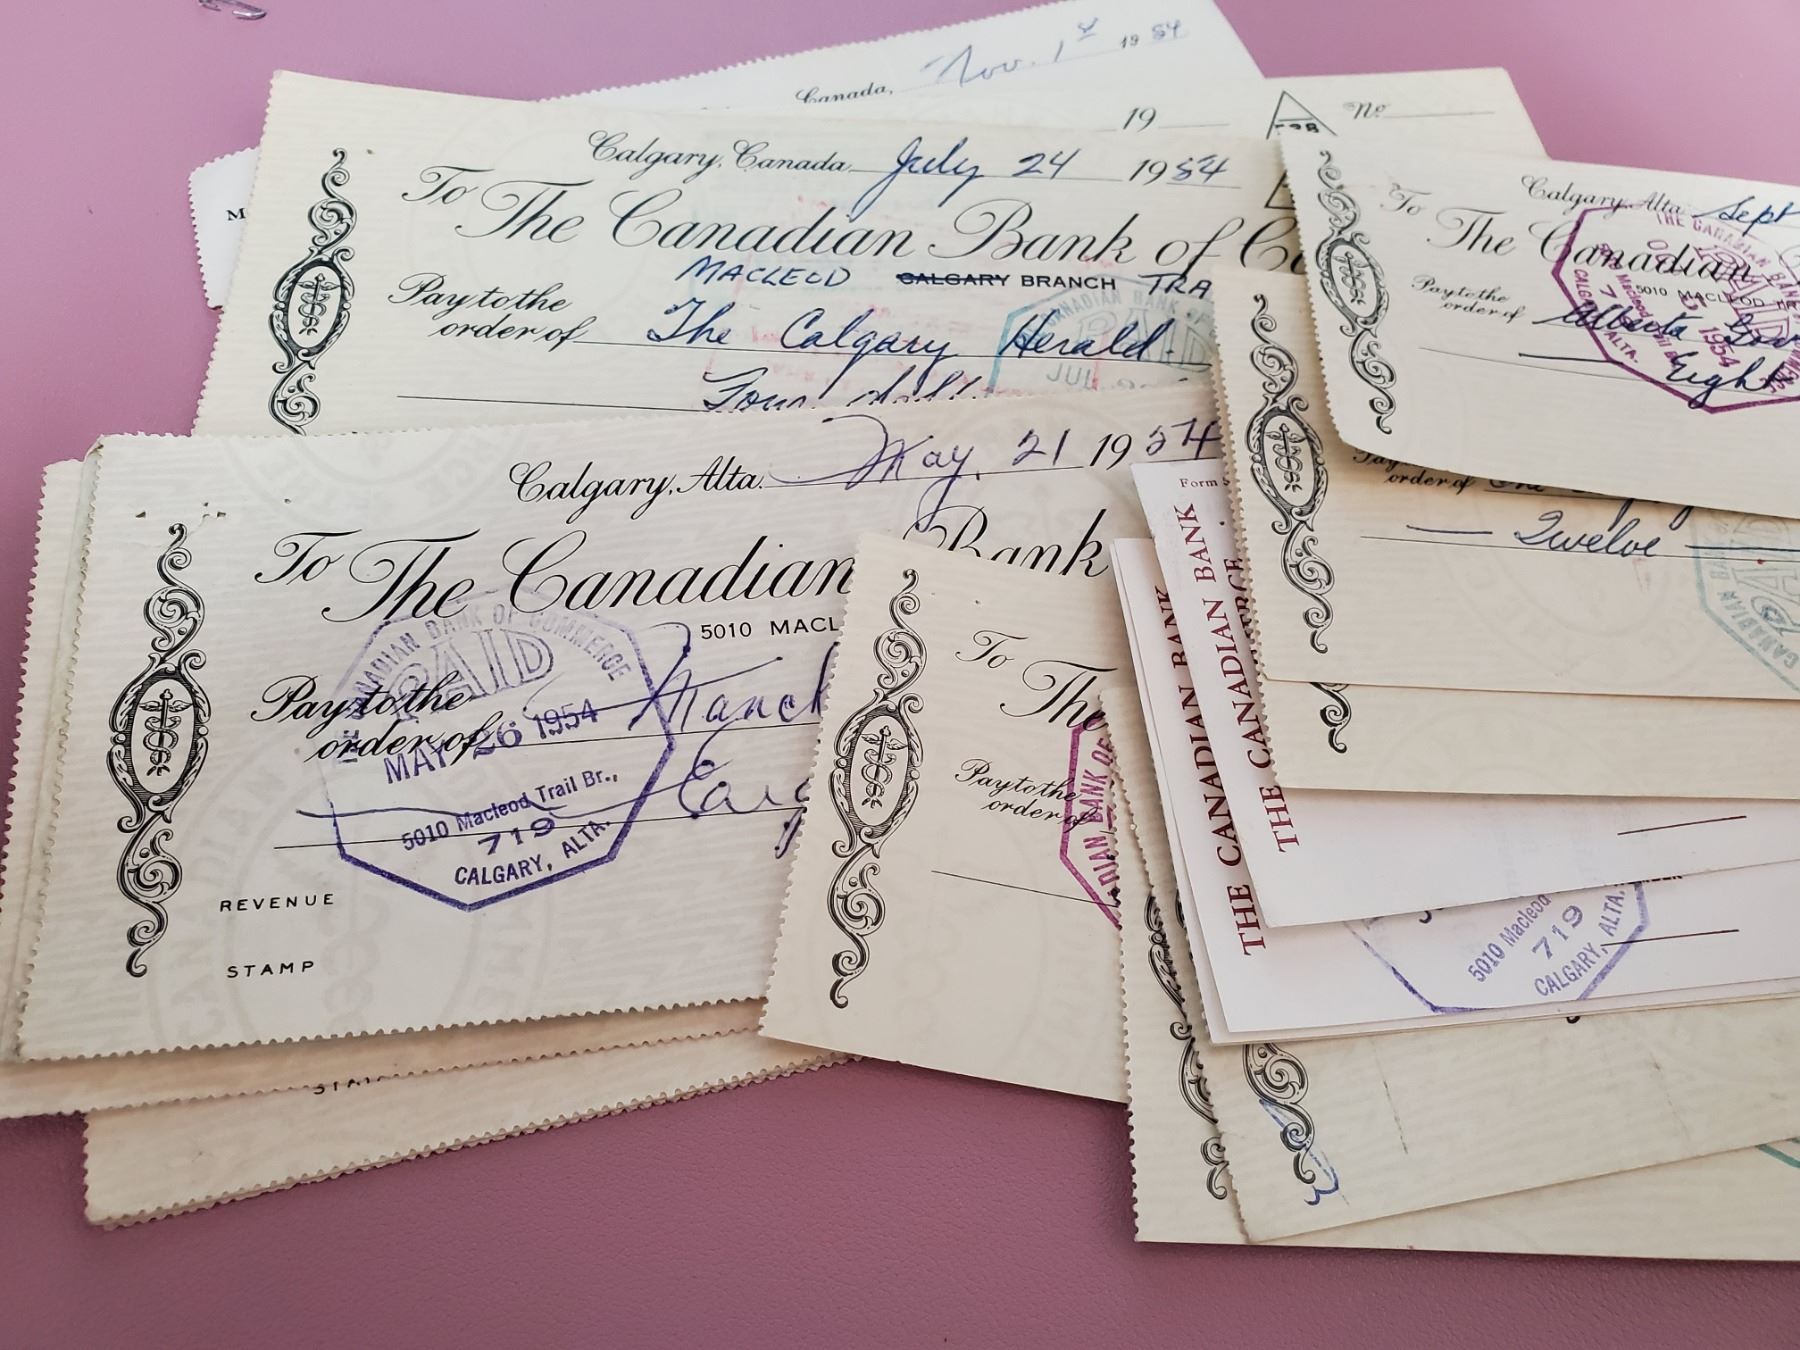 Canada, Nov. 1st 1954
19 No
M
Calgary, Canada July 24 1954
To The Canadian Bank of C
MACLEOD CALGARY BRANCH TRA
Pay to the
order of The Calgary Herald.
CANADIAN BANK OF
PAID
JUL
Calgary, Alta. Sept
To The Canadian
THE CANADIAN BANK
5010 MACLEOD
Pay to the
order of Alberta
Eight
1954
CALGARY, ALTA.
order of
Twelve
CANADIAN BANK
Calgary, Alta. May, 21 1954
To The Canadian Bank
5010 MACL
CANADIAN BANK OF COMMERCE
PAID
Pay to the
order of
MAY 26 1954
5010 Macleod Trail Br.,
719
CALGARY, ALTA.
REVENUE
STAMP
To
The
Pay to the
order of
DIAN BANK OF
Form
THE CANADIAN BANK
THE CANADIAN BANK
5010 Macleod
719
CALGARY, ALTA.